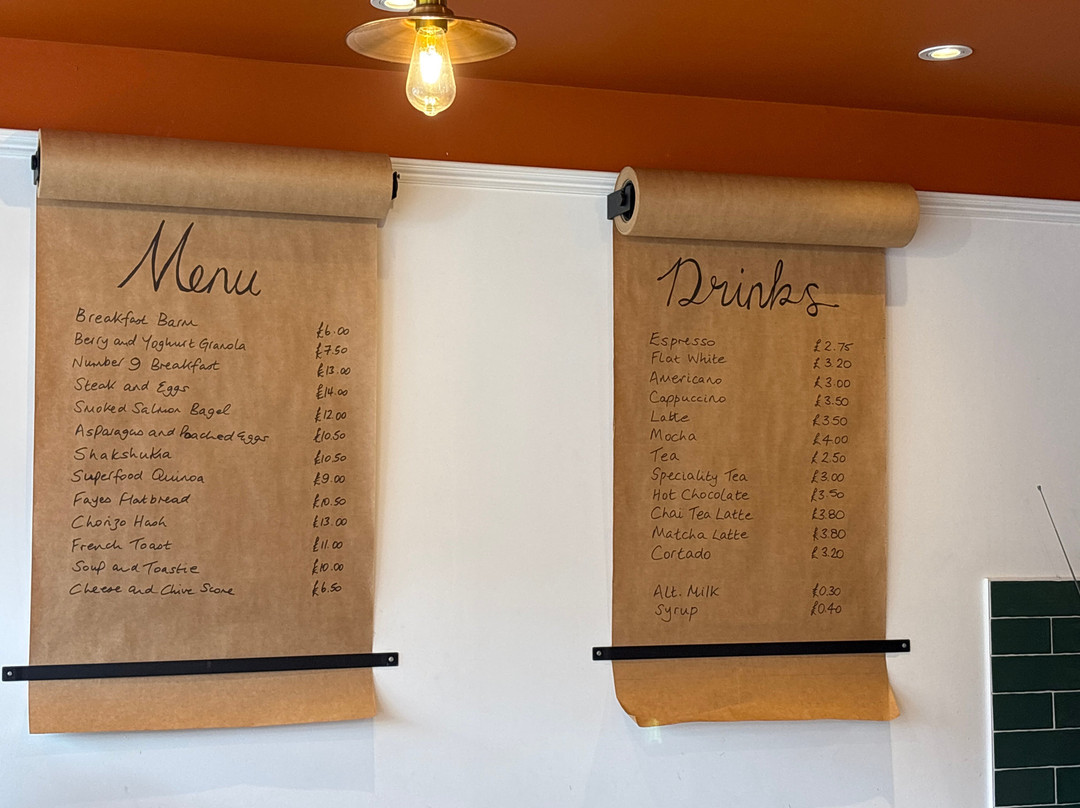 Menu
Breakfast Barm £6.00
Berry and Yoghurt Granola £7.50
Number 9 Breakfast £13.00
Steak and Eggs £14.00
Smoked Salmon Bagel £12.00
Asparagus and Poached Eggs £10.50
Shakshuka £10.50
Superfood Quinoa £9.00
Fayes Flatbread £10.50
Chorizo Hash £13.00
French Toast £11.00
Soup and Toastie £10.00
Cheese and Chive Scone £6.50
Drinks
Espresso £2.75
Flat White £3.20
Americano £3.00
Cappuccino £3.50
Latte £3.50
Mocha £4.00
Tea £2.50
Speciality Tea £3.00
Hot Chocolate £3.50
Chai Tea Latte £3.80
Matcha Latte £3.80
Cortado £3.20
Alt. Milk £0.30
Syrup £0.40